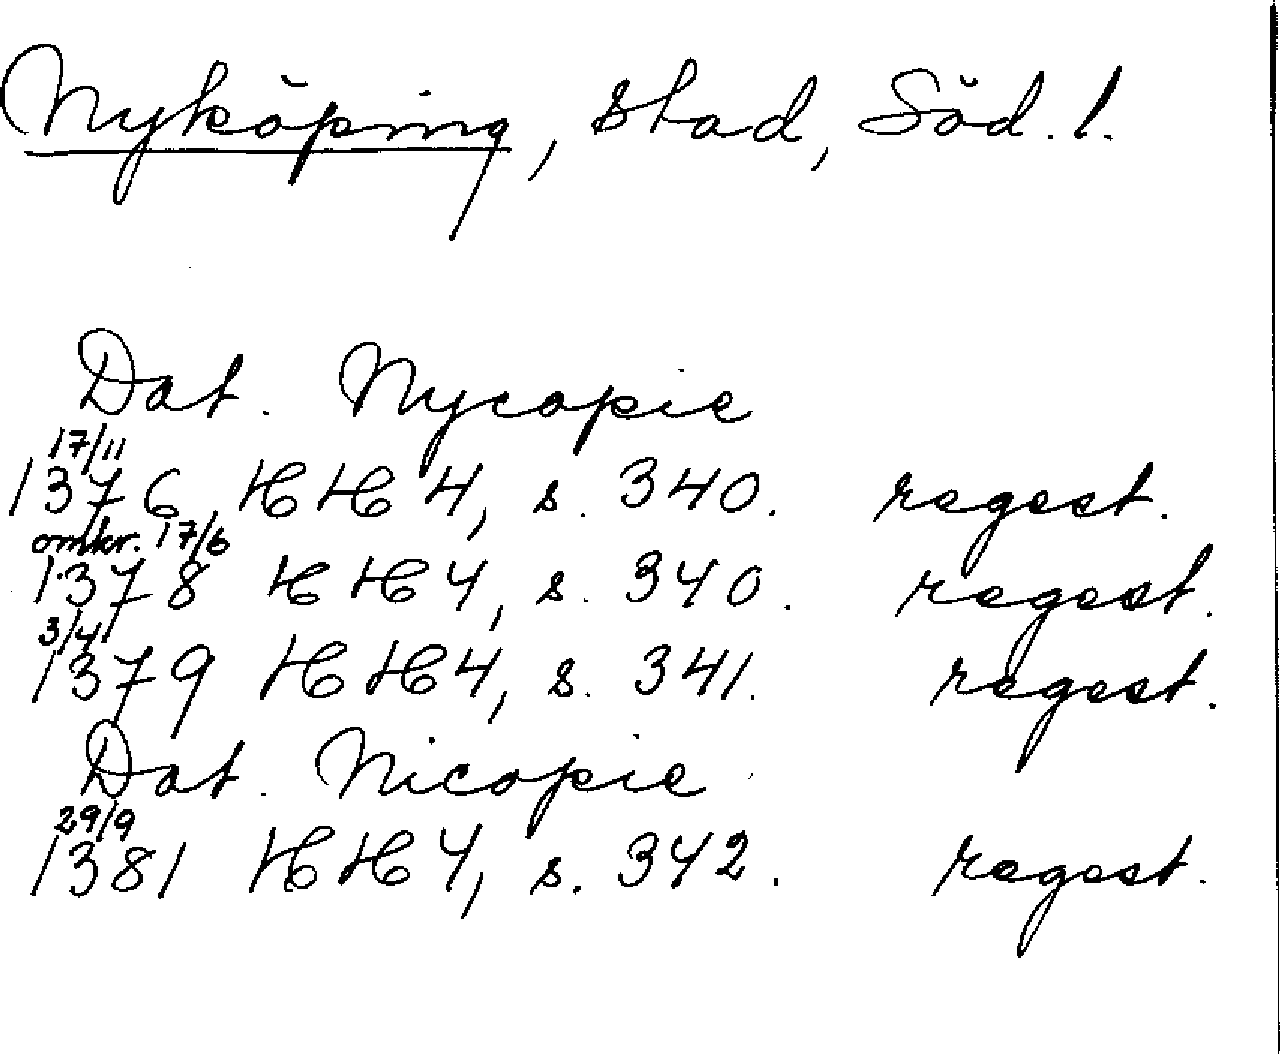 Nyköping, stad, Söd. l.
Dat. Nycopie
17/11
1376 HH 4, s. 340. regest.
omkr. 17/6
1378 HH 4, s. 340. regest.
3/4
1379 HH 4, s. 341. regest.
Dat. Nicopie
29/9
1381 HH 4, s. 342. regest.